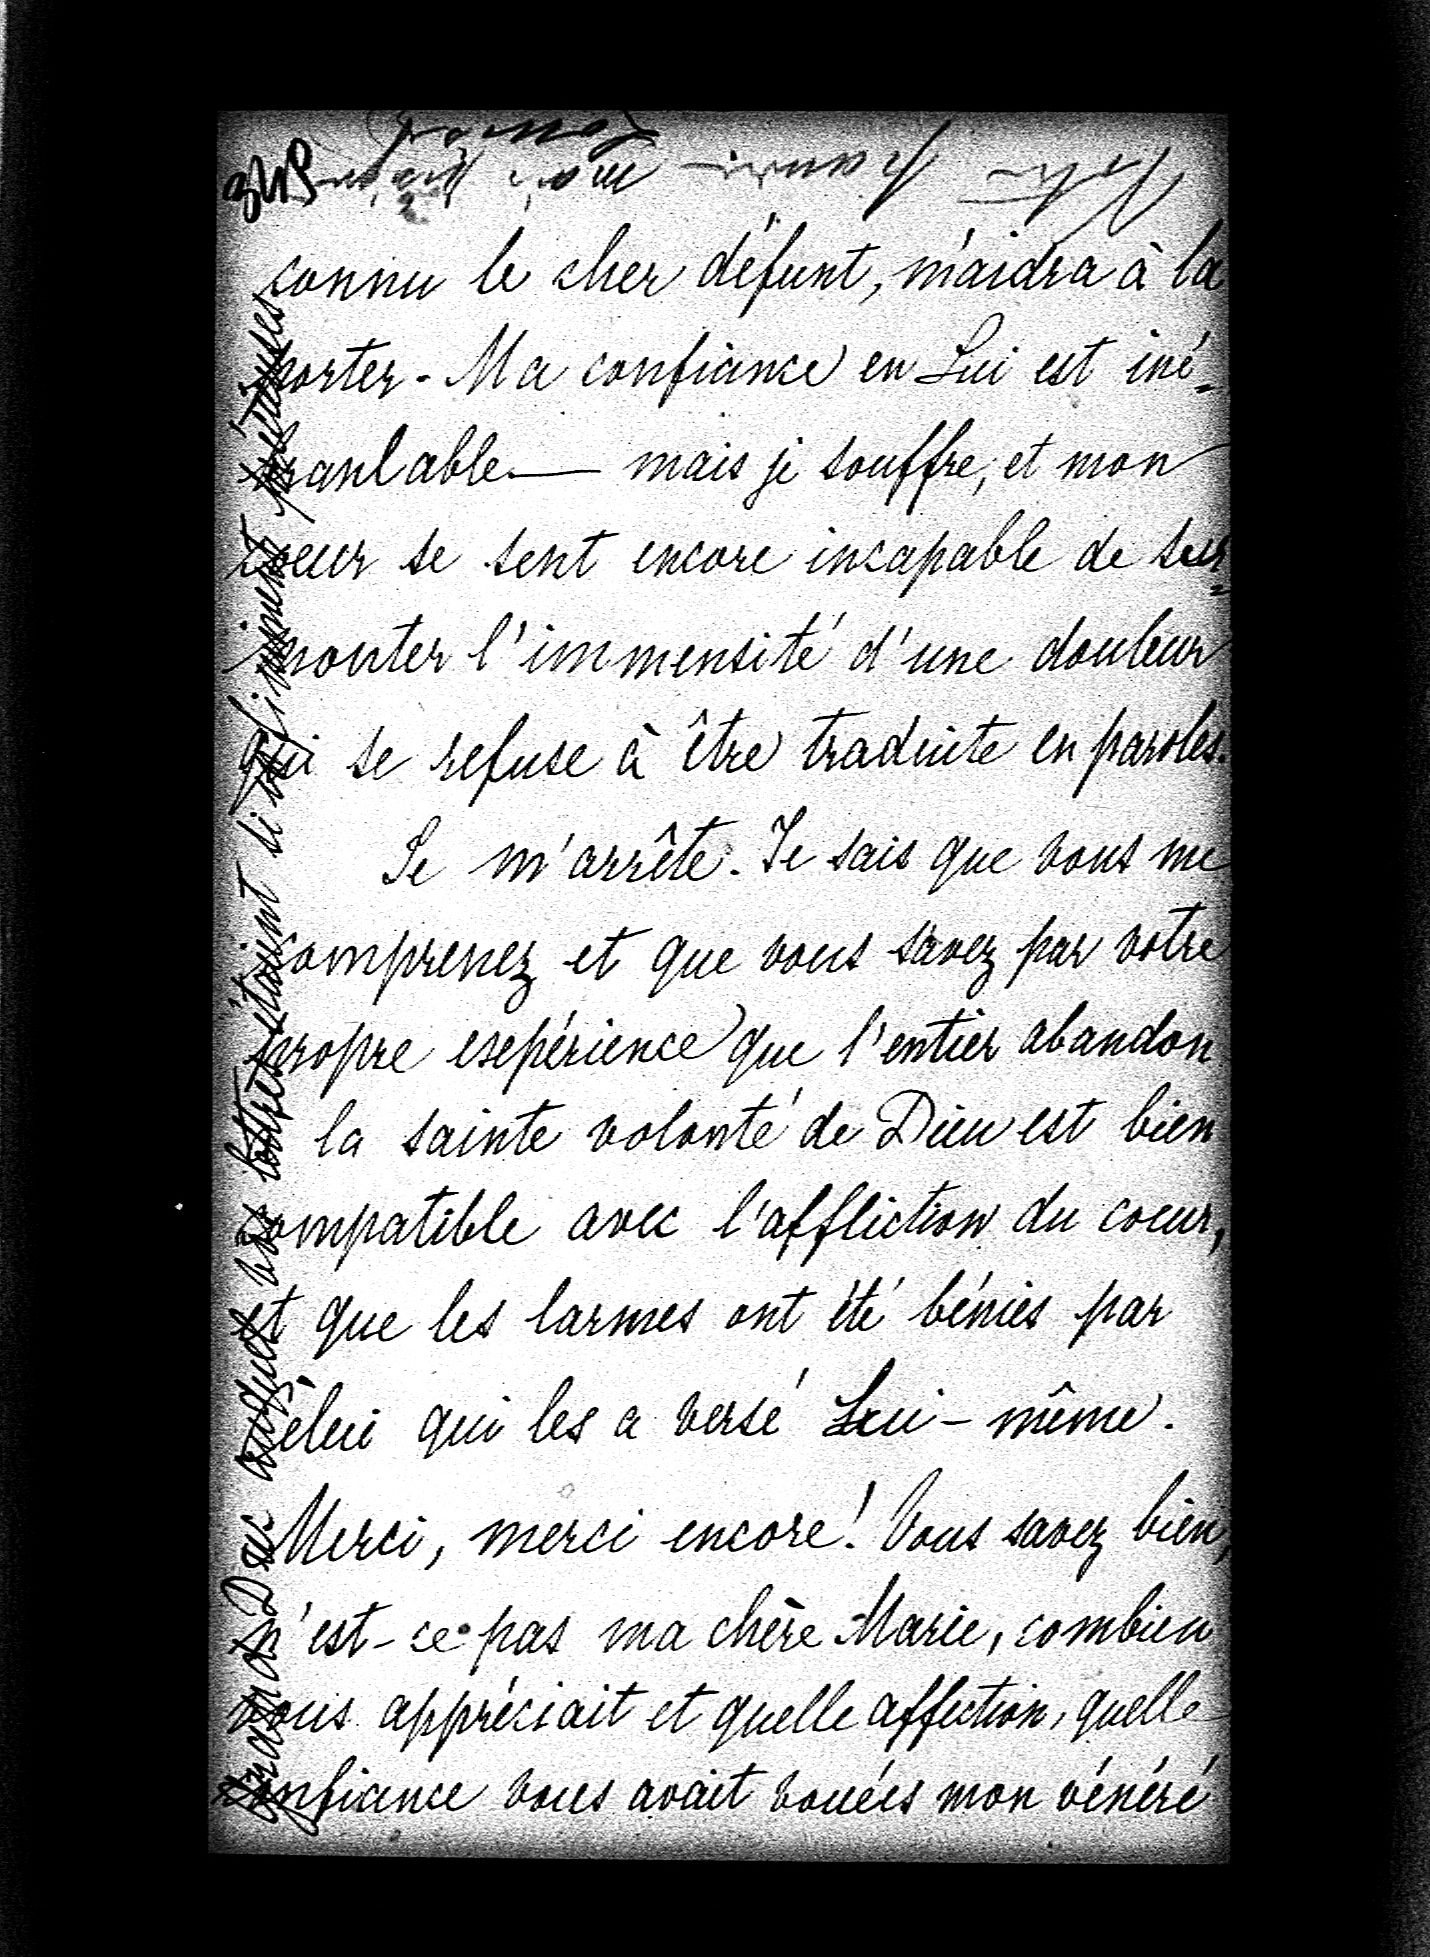 connu le cher défunt, m'aidra à la
porter. Ma confiance en Lui est iné=
branlable — mais je souffre, et mon
coeur se sent encore incapable de sur=
monter l'immensité d'une douleur
qui se refuse à être traduite en paroles.
Je m'arrête. Je sais que vous me
comprenez et que vous savez par votre
propre esepérience que l'entier abandon
la sainte volonté de Dieu est bien
compatible avec l'affliction du coeur,
et que les larmes ont été bénies par
Célui qui les a versé Lui-même.
Merci, merci encore! Vous savez bien,
n'est-ce pas ma chère Marie, combien
vous appréciait et quelle affection, quelle
confiance vous avait vouées mon vénéré
grand Duc auquel vos lettres étaient si infiniment précieuses